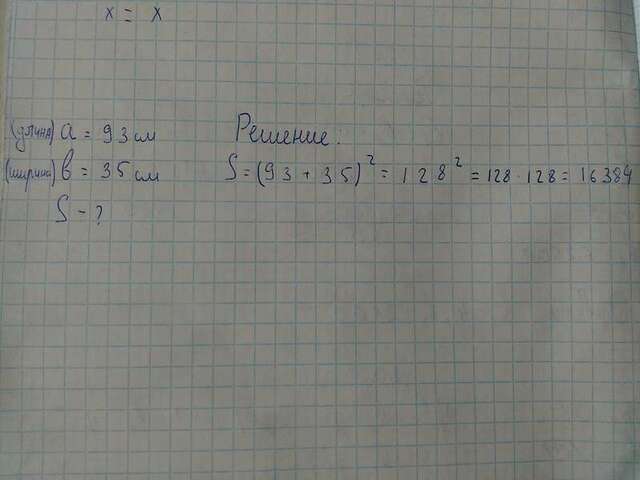 x = x
(длина) a = 93 см
Решение:
(ширина) b = 35 см
S = (93 + 35)² = 128² = 128 · 128 = 16384
S - ?